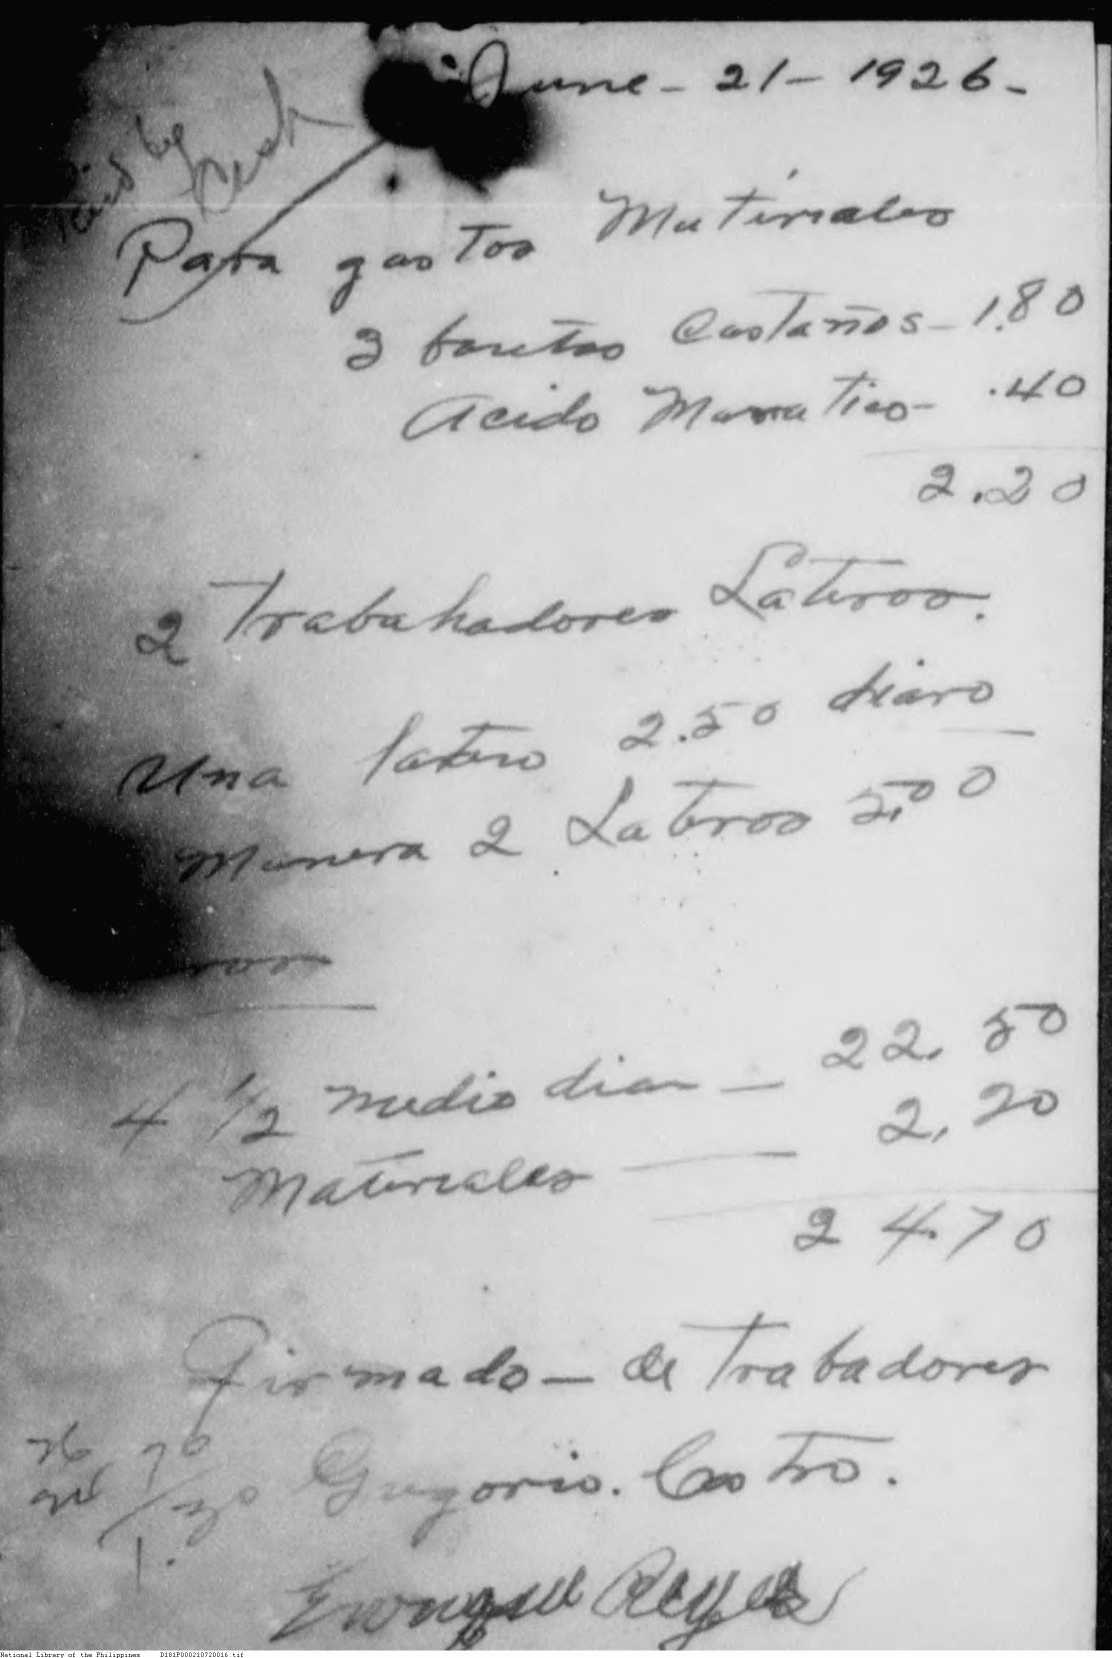 June - 21 - 1926 -
Paid by
Cash
Para gastos Materiales
3 baretas Castaños - 1.80
Acido Moriatico - .40
2.20
2 Trabahadores Lateros.
Una latero 2.50 diaro
Manera 2 Lateros 5.00
4 1/2 medio dias — 22.50
Materiales — 2.20
24.70
Firmado - de Trabadores
Gregorio. Castro.
Enrique Reyes
National Library of the Philippines D181P000210720016.tif